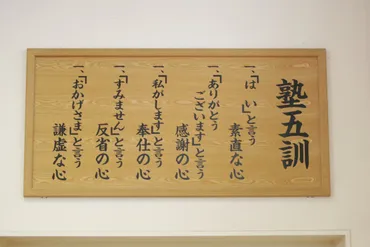 塾五訓
一、「は い」と言う
素直な心
一、「ありがとう
ございます」と言う
感謝の心
一、「私がします」と言う
奉仕の心
一、「すみません」と言う
反省の心
一、「おかげさま」と言う
謙虚な心